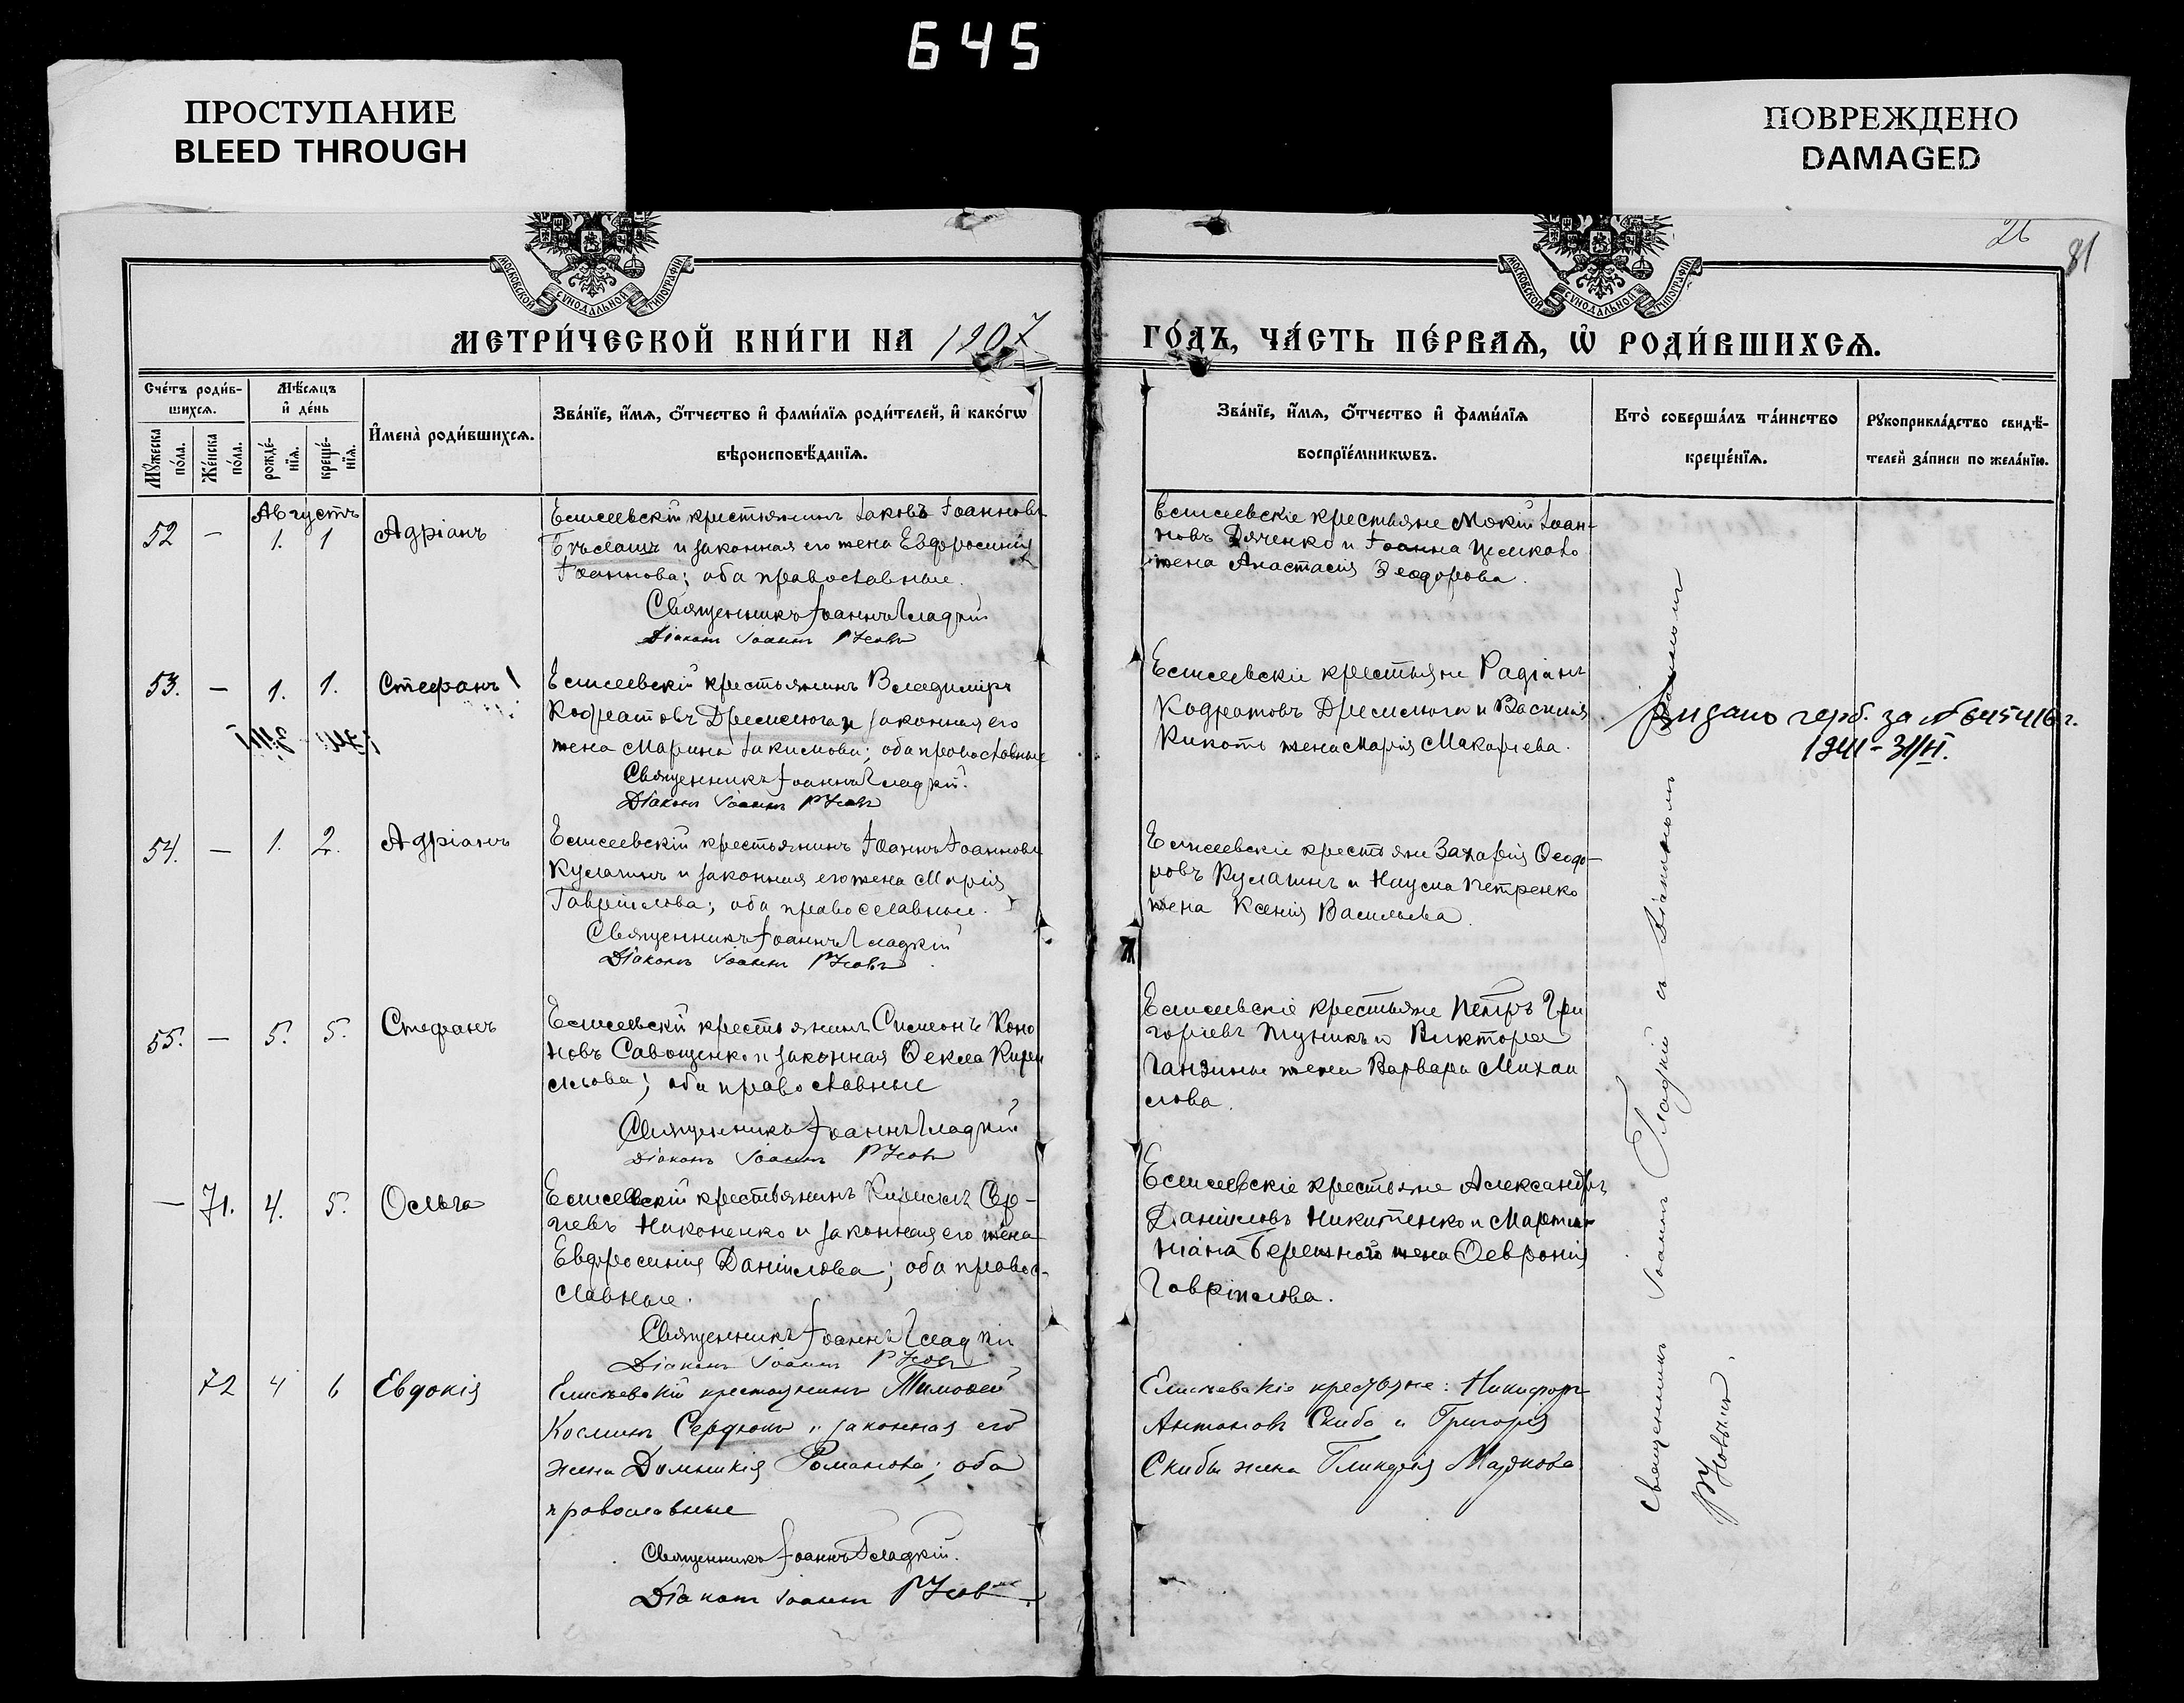 645
ПРОСТУПАНИЕ
BLEED THROUGH
ПОВРЕЖДЕНО
DAMAGED
26
81
МОСКОВСКОЙ СѴНОДАЛЬНОЙ ТИПОГРАФІИ
МОСКОВСКОЙ СѴНОДАЛЬНОЙ ТИПОГРАФІИ
МЕТРИ́ЧЕСКОЙ КНИ́ГИ НА 1907
ГО́ДЪ, ЧА́СТЬ ПЕ́РВАѦ, Ѡ҆ РОДИ́ВШИХСѦ.
Сче́тъ роди́в-
шихсѧ.
Мꙋ́жеска
по́ла.
Же́нска
по́ла.
Мѣ́сѧцъ
и҆ де́нь
рожде́-
нїѧ.
креще́-
нїѧ.
И҆мена̀ роди́вшихсѧ.
Зва́нїе, и҆́мѧ, ѻ҆́тчество и҆ фами́лїѧ роди́телей, и҆ како́гѡ
вѣроисповѣ́данїѧ.
Зва́нїе, и҆́мѧ, ѻ҆́тчество и҆ фами́лїѧ
воспрїе́мникѡвъ.
Кто̀ соверша́лъ та́инство
креще́нїѧ.
Рꙋкоприкла́дство свидѣ́-
телей за́писи по жела́нїю.
Августъ
52 — 1. 1 Адріанъ
Елисеевскій крестьянинъ Іаковъ Іоанновъ
и законная его жена Евфросинія
Іоаннова; оба православные.
Священникъ Іоаннъ Гладкій
Діаконъ Іоаннъ
Елисеевскіе крестьяне Мокій Іоан-
новъ Дяченко и Іоанна
жена Анастасія Ѳеодорова.
53. — 1. 1. Стефанъ
Елисеевскій крестьянинъ Владиміръ
Кодратовъ Дремлюга и законная его
жена Марина Іакимова; оба православные
Священникъ Іоаннъ Гладкій.
Діаконъ Іоаннъ
Елисеевскіе крестьяне Радіанъ
Кодратовъ Дремлюга и Василія
Кикоть жена Марія Макаріева.
Видано герб. за № 645416 г.
1941 - 3/VI.
54. — 1. 2. Адріанъ
Елисеевскій крестьянинъ Іоаннъ Іоанновъ
Кулагинъ и законная его жена Марія
Гавріилова; оба православные.
Священникъ Іоаннъ Гладкій
Діаконъ Іоаннъ
Елисеевскіе крестьяне Захарія Ѳеодо-
ровъ Кулагинъ и Наума Петренко
жена Ксенія Васильева.
55. — 5. 5. Стефанъ
Елисеевскій крестьянинъ Симеонъ Коно
новъ Савощенко и законная Ѳекла Кири
ллова; оба православные
Священникъ Іоаннъ Гладкій
Діаконъ Іоаннъ
Елисеевскіе крестьяне Петръ Гри
горіевъ и Виктора
жена Варвара Михаи
лова.
— 71. 4. 5. Ольга
Елисеевскій крестьянинъ Кириллъ Сер-
гіевъ Никоненко и законная его жена
Евфросинія Даніилова; оба правос-
лавные.
Священникъ Іоаннъ Гладкій
Діаконъ Іоаннъ
Елисеевскіе крестьяне Александръ
Даніиловъ Никитенко и Мартин-
ніана Бережного жена Ѳевронія
Гавріилова.
72 4 6 Евдокія
Елисѣевскій крестьянинъ Тимоѳей
Косминъ Сердюкъ и законная его
жена Домникія Романова; оба
православные
Священникъ Іоаннъ Гладкій.
Діаконъ Іоаннъ
Елисѣевскіе крестьяне: Никифоръ
Антоновъ Скиба и Григорія
Скибы жена Гликерія Маркова.
Священникъ Іоаннъ Гладкій съ Діакономъ Іоанномъ